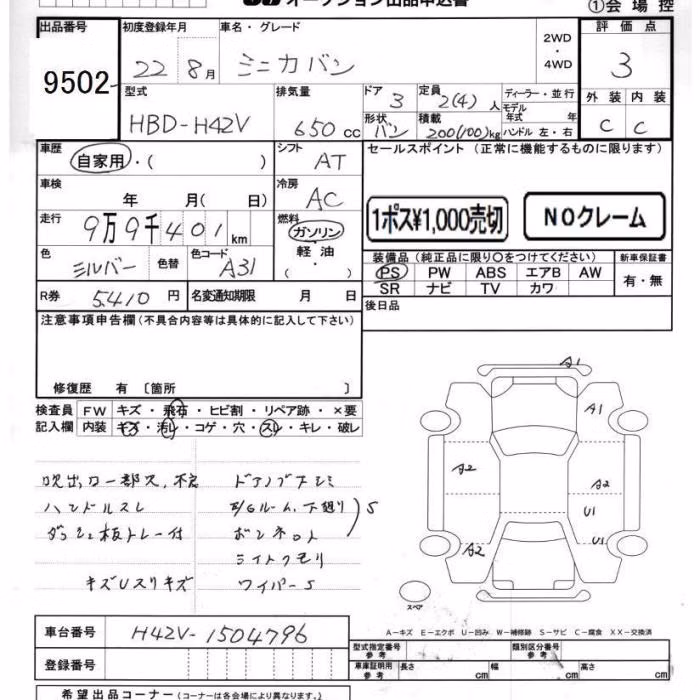 オークション出品申込書
①会場控
出品番号
9502
初度登録年月
22 8月
車名・グレード
ミニカバン
2WD
・
4WD
評価点
3
外装 内装
C C
型式
HBD-H42V
排気量
650cc
ドア 3
形状 バン
定員 2(4)人
積載 200(100)kg
ディーラー・並行
モデル年式 年
ハンドル 左・右
車歴
自家用・( )
シフト
AT
車検
年 月( 日)
冷房
AC
走行
9万9千401km
燃料
ガソリン
軽油
・( )
色
シルバー
色替
色コード
A31
R券 5410円
名変通知期限 月 日
セールスポイント (正常に機能するものに限ります)
1ポス¥1,000売切
NOクレーム
装備品(純正品に限り○をつけてください)
PS PW ABS エアB AW
SR ナビ TV カワ
新車保証書
有・無
後日品
注意事項申告欄(不具合内容等は具体的に記入して下さい)
修復歴 有 〔箇所 〕
検査員
記入欄
FW キズ・飛石・ヒビ割・リペア跡・×要
内装 キズ・汚レ・コゲ・穴・スレ・キレ・破レ
吹出口一部欠
ハンドルスレ
キズUスリキズ
ボンネット
ライトクモリ
ワイパーS
S
A1
A1
A2
A2
U1
U1
A2
スペア
A-キズ E-エクボ U-凹み W-補修跡 S-サビ C-腐食 XX-交換済
車台番号
H42V-1504796
登録番号
型式指定番号
参考
類別区分番号
参考
車庫証明用
参考
長さ cm
幅 cm
高さ cm
希望出品コーナー(コーナーは各会場により異なります。)